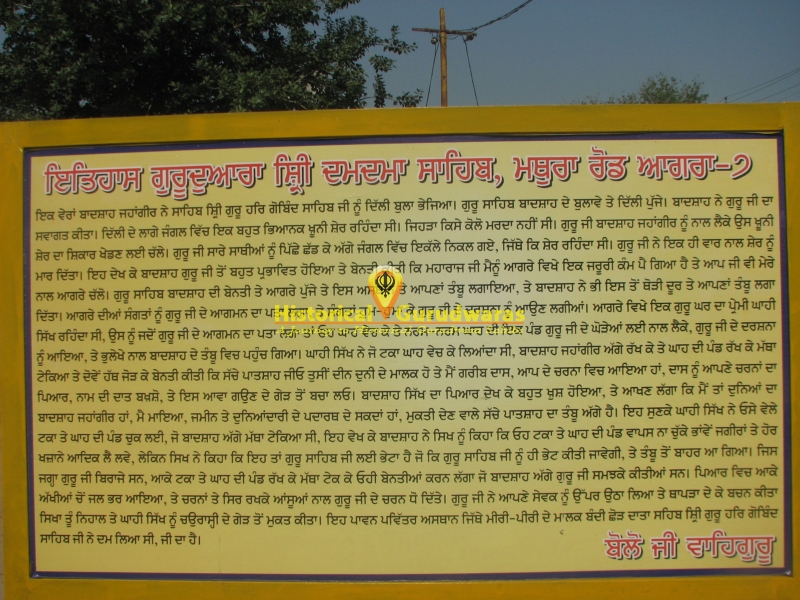 ਇਤਿਹਾਸ ਗੁਰੂਦੁਆਰਾ ਸ਼੍ਰੀ ਦਮਦਮਾ ਸਾਹਿਬ, ਮਥੁਰਾ ਰੋਂਡ ਆਗਰਾ-੭
ਇਕ ਵੇਰਾਂ ਬਾਦਸ਼ਾਹ ਜਹਾਂਗੀਰ ਨੇ ਸਾਹਿਬ ਸ਼੍ਰੀ ਗੁਰੂ ਹਰਿ ਗੋਬਿੰਦ ਸਾਹਿਬ ਜੀ ਨੂੰ ਦਿੱਲੀ ਬੁਲਾ ਭੇਜਿਆ। ਗੁਰੂ ਸਾਹਿਬ ਬਾਦਸ਼ਾਹ ਦੇ ਬੁਲਾਵੇ ਤੇ ਦਿੱਲੀ ਪੁੱਜੇ। ਬਾਦਸ਼ਾਹ ਨੇ ਗੁਰੂ ਜੀ ਦਾ
ਸਵਾਗਤ ਕੀਤਾ। ਦਿੱਲੀ ਦੇ ਲਾਗੇ ਜੰਗਲ ਵਿੱਚ ਇਕ ਬਹੁਤ ਭਿਆਨਕ ਖੂਨੀ ਸ਼ੇਰ ਰਹਿੰਦਾ ਸੀ। ਜਿਹੜਾ ਕਿਸੇ ਕੋਲੋ ਮਰਦਾ ਨਹੀਂ ਸੀ। ਗੁਰੂ ਜੀ ਬਾਦਸ਼ਾਹ ਜਹਾਂਗੀਰ ਨੂੰ ਨਾਲ ਲੈਕੇ ਉਸ ਖੂਨੀ
ਸ਼ੇਰ ਦਾ ਸ਼ਿਕਾਰ ਖੇਡਣ ਲਈ ਚੱਲੇ। ਗੁਰੂ ਜੀ ਸਾਰੇ ਸਾਥੀਆਂ ਨੂੰ ਪਿੱਛੇ ਛੱਡ ਕੇ ਅੱਗੇ ਜੰਗਲ ਵਿੱਚ ਇਕੱਲੇ ਨਿਕਲ ਗਏ, ਜਿੱਥੇ ਕਿ ਸ਼ੇਰ ਰਹਿੰਦਾ ਸੀ। ਗੁਰੂ ਜੀ ਨੇ ਇਕ ਹੀ ਵਾਰ ਨਾਲ ਸ਼ੇਰ ਨੂੰ
ਮਾਰ ਦਿੱਤਾ। ਇਹ ਦੇਖ ਕੇ ਬਾਦਸ਼ਾਹ ਗੁਰੂ ਜੀ ਤੋਂ ਬਹੁਤ ਪ੍ਰਭਾਵਿਤ ਹੋਇਆ ਤੇ ਬੇਨਤੀ ਕੀਤੀ ਕਿ ਮਹਾਰਾਜ ਜੀ ਮੈਨੂੰ ਆਗਰੇ ਵਿਖੇ ਇਕ ਜਰੂਰੀ ਕੰਮ ਪੈ ਗਿਆ ਹੈ ਤੇ ਆਪ ਜੀ ਵੀ ਮੇਰੇ
ਨਾਲ ਆਗਰੇ ਚੱਲੋ। ਗੁਰੂ ਸਾਹਿਬ ਬਾਦਸ਼ਾਹ ਦੀ ਬੇਨਤੀ ਤੇ ਆਗਰੇ ਪੁੱਜੇ ਤੇ ਇਸ ਆਪਣਾਂ ਤੰਬੂ ਲਗਾਇਆ, ਤੇ ਬਾਦਸ਼ਾਹ ਨੇ ਭੀ ਇਸ ਤੋਂ ਥੋੜੀ ਦੂਰ ਤੇ ਆਪਣਾਂ ਤੰਬੂ ਲਗਾ
ਦਿੱਤਾ। ਆਗਰੇ ਦੀਆਂ ਸੰਗਤਾਂ ਨੂੰ ਗੁਰੂ ਜੀ ਦੇ ਆਗਮਨ ਦਾ ਗੁਰੂ ਜੀ ਦੇ ਦਰਸ਼ਨਾ ਨੂੰ ਆਉਣ ਲਗੀਆਂ। ਆਗਰੇ ਵਿਖੇ ਇਕ ਗੁਰੂ ਘਰ ਦਾ ਪ੍ਰੇਮੀ ਘਾਹੀ
Historical Gurudwaras
ਸਿੱਖ ਰਹਿੰਦਾ ਸੀ, ਉਸ ਨੂੰ ਜਦੋਂ ਗੁਰੂ ਜੀ ਦੇ ਆਗਮਨ ਦਾ ਪਤਾ ਲੱਗਾ ਤਾਂ ਓਹ ਘਾਹ ਵੇਚ ਕੇ ਤੇ ਨਰਮ-ਨਰਮ ਘਾਹ ਦੀ ਇਕ ਪੰਡ ਗੁਰੂ ਜੀ ਦੇ ਘੋੜੇਆਂ ਲਈ ਨਾਲ ਲੈਕੇ, ਗੁਰੂ ਜੀ ਦੇ ਦਰਸ਼ਨਾ
ਨੂੰ ਆਇਆ, ਤੇ ਭੁਲੇਖੇ ਨਾਲ ਬਾਦਸ਼ਾਹ ਦੇ ਤੰਬੂ ਵਿਚ ਪਹੁੰਚ ਗਿਆ। ਘਾਹੀ ਸਿੱਖ ਨੇ ਜੋ ਟਕਾ ਘਾਹ ਵੇਚ ਕੇ ਲਿਆਂਦਾ ਸੀ, ਬਾਦਸ਼ਾਹ ਜਹਾਂਗੀਰ ਅੱਗੇ ਰੱਖ ਕੇ ਤੇ ਘਾਹ ਦੀ ਪੰਡ ਰੱਖ ਕੇ ਮੱਥਾ
ਟੇਕਿਆ ਤੇ ਦੋਵੇਂ ਹੱਥ ਜੋੜ ਕੇ ਬੇਨਤੀ ਕੀਤੀ ਕਿ ਸੱਚੇ ਪਾਤਸ਼ਾਹ ਜੀਓ ਤੁਸੀਂ ਦੀਨ ਦੁਨੀ ਦੇ ਮਾਲਕ ਹੋ ਤੇ ਮੈਂ ਗਰੀਬ ਦਾਸ, ਆਪ ਦੇ ਚਰਨਾ ਵਿਚ ਆਇਆ ਹਾਂ, ਦਾਸ ਨੂੰ ਆਪਣੇ ਚਰਨਾਂ ਦਾ
ਪਿਆਰ, ਨਾਮ ਦੀ ਦਾਤ ਬਖਸ਼ੋ, ਤੇ ਇਸ ਆਵਾ ਗਉਣ ਦੇ ਗੇੜ ਤੋਂ ਬਚਾ ਲਓ। ਬਾਦਸ਼ਾਹ ਸਿੱਖ ਦਾ ਪਿਆਰ ਦੇਖ ਕੇ ਬਹੁਤ ਖੁਸ਼ ਹੋਇਆ, ਤੇ ਆਖਣ ਲੱਗਾ ਕਿ ਮੈਂ ਤਾਂ ਦੁਨਿਆਂ ਦਾ
ਬਾਦਸ਼ਾਹ ਜਹਾਂਗੀਰ ਹਾਂ, ਮੈ ਮਾਇਆ, ਜਮੀਨ ਤੇ ਦੁਨਿਆਂਦਾਰੀ ਦੇ ਪਦਾਰਥ ਦੇ ਸਕਦਾਂ ਹਾਂ, ਮੁਕਤੀ ਦੇਣ ਵਾਲੇ ਸੱਚੇ ਪਾਤਸ਼ਾਹ ਦਾ ਤੰਬੂ ਅੱਗੇ ਹੈ। ਇਹ ਸੁਣਕੇ ਘਾਹੀ ਸਿੱਖ ਨੇ ਓਸੇ ਵੇਲੇ
ਟਕਾ ਤੇ ਘਾਹ ਦੀ ਪੰਡ ਚੁਕ ਲਈ, ਜੋ ਬਾਦਸ਼ਾਹ ਅੱਗੇ ਮੱਥਾ ਟੇਕਿਆ ਸੀ, ਇਹ ਵੇਖ ਕੇ ਬਾਦਸ਼ਾਹ ਨੇ ਸਿਖ ਨੂੰ ਕਿਹਾ ਕਿ ਓਹ ਟਕਾ ਤੇ ਘਾਹ ਦੀ ਪੰਡ ਵਾਪਸ ਨਾ ਚੁੱਕੇ ਭਾਂਵੇਂ ਜਗੀਰਾਂ ਤੇ ਹੋਰ
ਖਜ਼ਾਨੇ ਆਦਿਕ ਲੈ ਲਵੇ, ਲੇਕਿਨ ਸਿਖ ਨੇ ਕਿਹਾ ਕਿ ਇਹ ਤਾਂ ਗੁਰੂ ਸਾਹਿਬ ਜੀ ਲਈ ਭੇਟਾ ਹੈ ਜੋ ਕਿ ਗੁਰੂ ਸਾਹਿਬ ਜੀ ਨੂੰ ਹੀ ਭੇਟ ਕੀਤੀ ਜਾਵੇਗੀ, ਤੇ ਤੰਬੂ ਤੋਂ ਬਾਹਰ ਆ ਗਿਆ। ਜਿਸ
ਜਗ੍ਹਾ ਗੁਰੂ ਜੀ ਬਿਰਾਜੇ ਸਨ, ਆਕੇ ਟਕਾ ਤੇ ਘਾਹ ਦੀ ਪੰਡ ਰੱਖ ਕੇ ਮੱਥਾ ਟੇਕ ਕੇ ਓਹੀ ਬੇਨਤੀਆਂ ਕਰਨ ਲੱਗਾ ਜੋ ਬਾਦਸ਼ਾਹ ਅੱਗੇ ਗੁਰੂ ਜੀ ਸਮਝਕੇ ਕੀਤੀਆਂ ਸਨ। ਪਿਆਰ ਵਿਚ ਆਕੇ
ਅੱਖੀਆਂ ਚੋਂ ਜਲ ਭਰ ਆਇਆ, ਤੇ ਚਰਨਾਂ ਤੇ ਸਿਰ ਰਖਕੇ ਆਂਸੂਆਂ ਨਾਲ ਗੁਰੂ ਜੀ ਦੇ ਚਰਨ ਧੋ ਦਿੱਤੇ। ਗੁਰੂ ਜੀ ਨੇ ਆਪਣੇ ਸੇਵਕ ਨੂੰ ਉੱਪਰ ਉਠਾ ਲਿਆ ਤੇ ਥਾਪੜਾ ਦੇ ਕੇ ਬਚਨ ਕੀਤਾ
ਸਿਖਾ ਤੂੰ ਨਿਹਾਲ ਤੇ ਘਾਹੀ ਸਿੱਖ ਨੂੰ ਚਉਰਾਸ੍ਹੀ ਦੇ ਗੇੜ ਤੋਂ ਮੁਕਤ ਕੀਤਾ। ਇਹ ਪਾਵਨ ਪਵਿੱਤਰ ਅਸਥਾਨ ਜਿੱਥੇ ਮੀਰੀ-ਪੀਰੀ ਦੇ ਮਾਲਕ ਬੰਦੀ ਛੋੜ ਦਾਤਾ ਸਹਿਬ ਸ਼੍ਰੀ ਗੁਰੂ ਹਰਿ ਗੋਬਿੰਦ
ਸਾਹਿਬ ਜੀ ਨੇ ਦਮ ਲਿਆ ਸੀ, ਜੀ ਦਾ ਹੈ।
ਬੋਲੋਂ ਜੀ ਵਾਹਿਗੁਰੂ